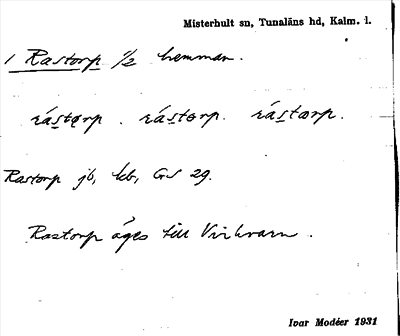 Misterhult sn, Tunaläns hd, Kalm. l.
1 Rastorp 1/2 hemman.
rástørp . rástorp. rástærp.
Rastorp jb, kb, GS 29.
Rastorp äges till Virkvarn.
Ivar Modéer 1931